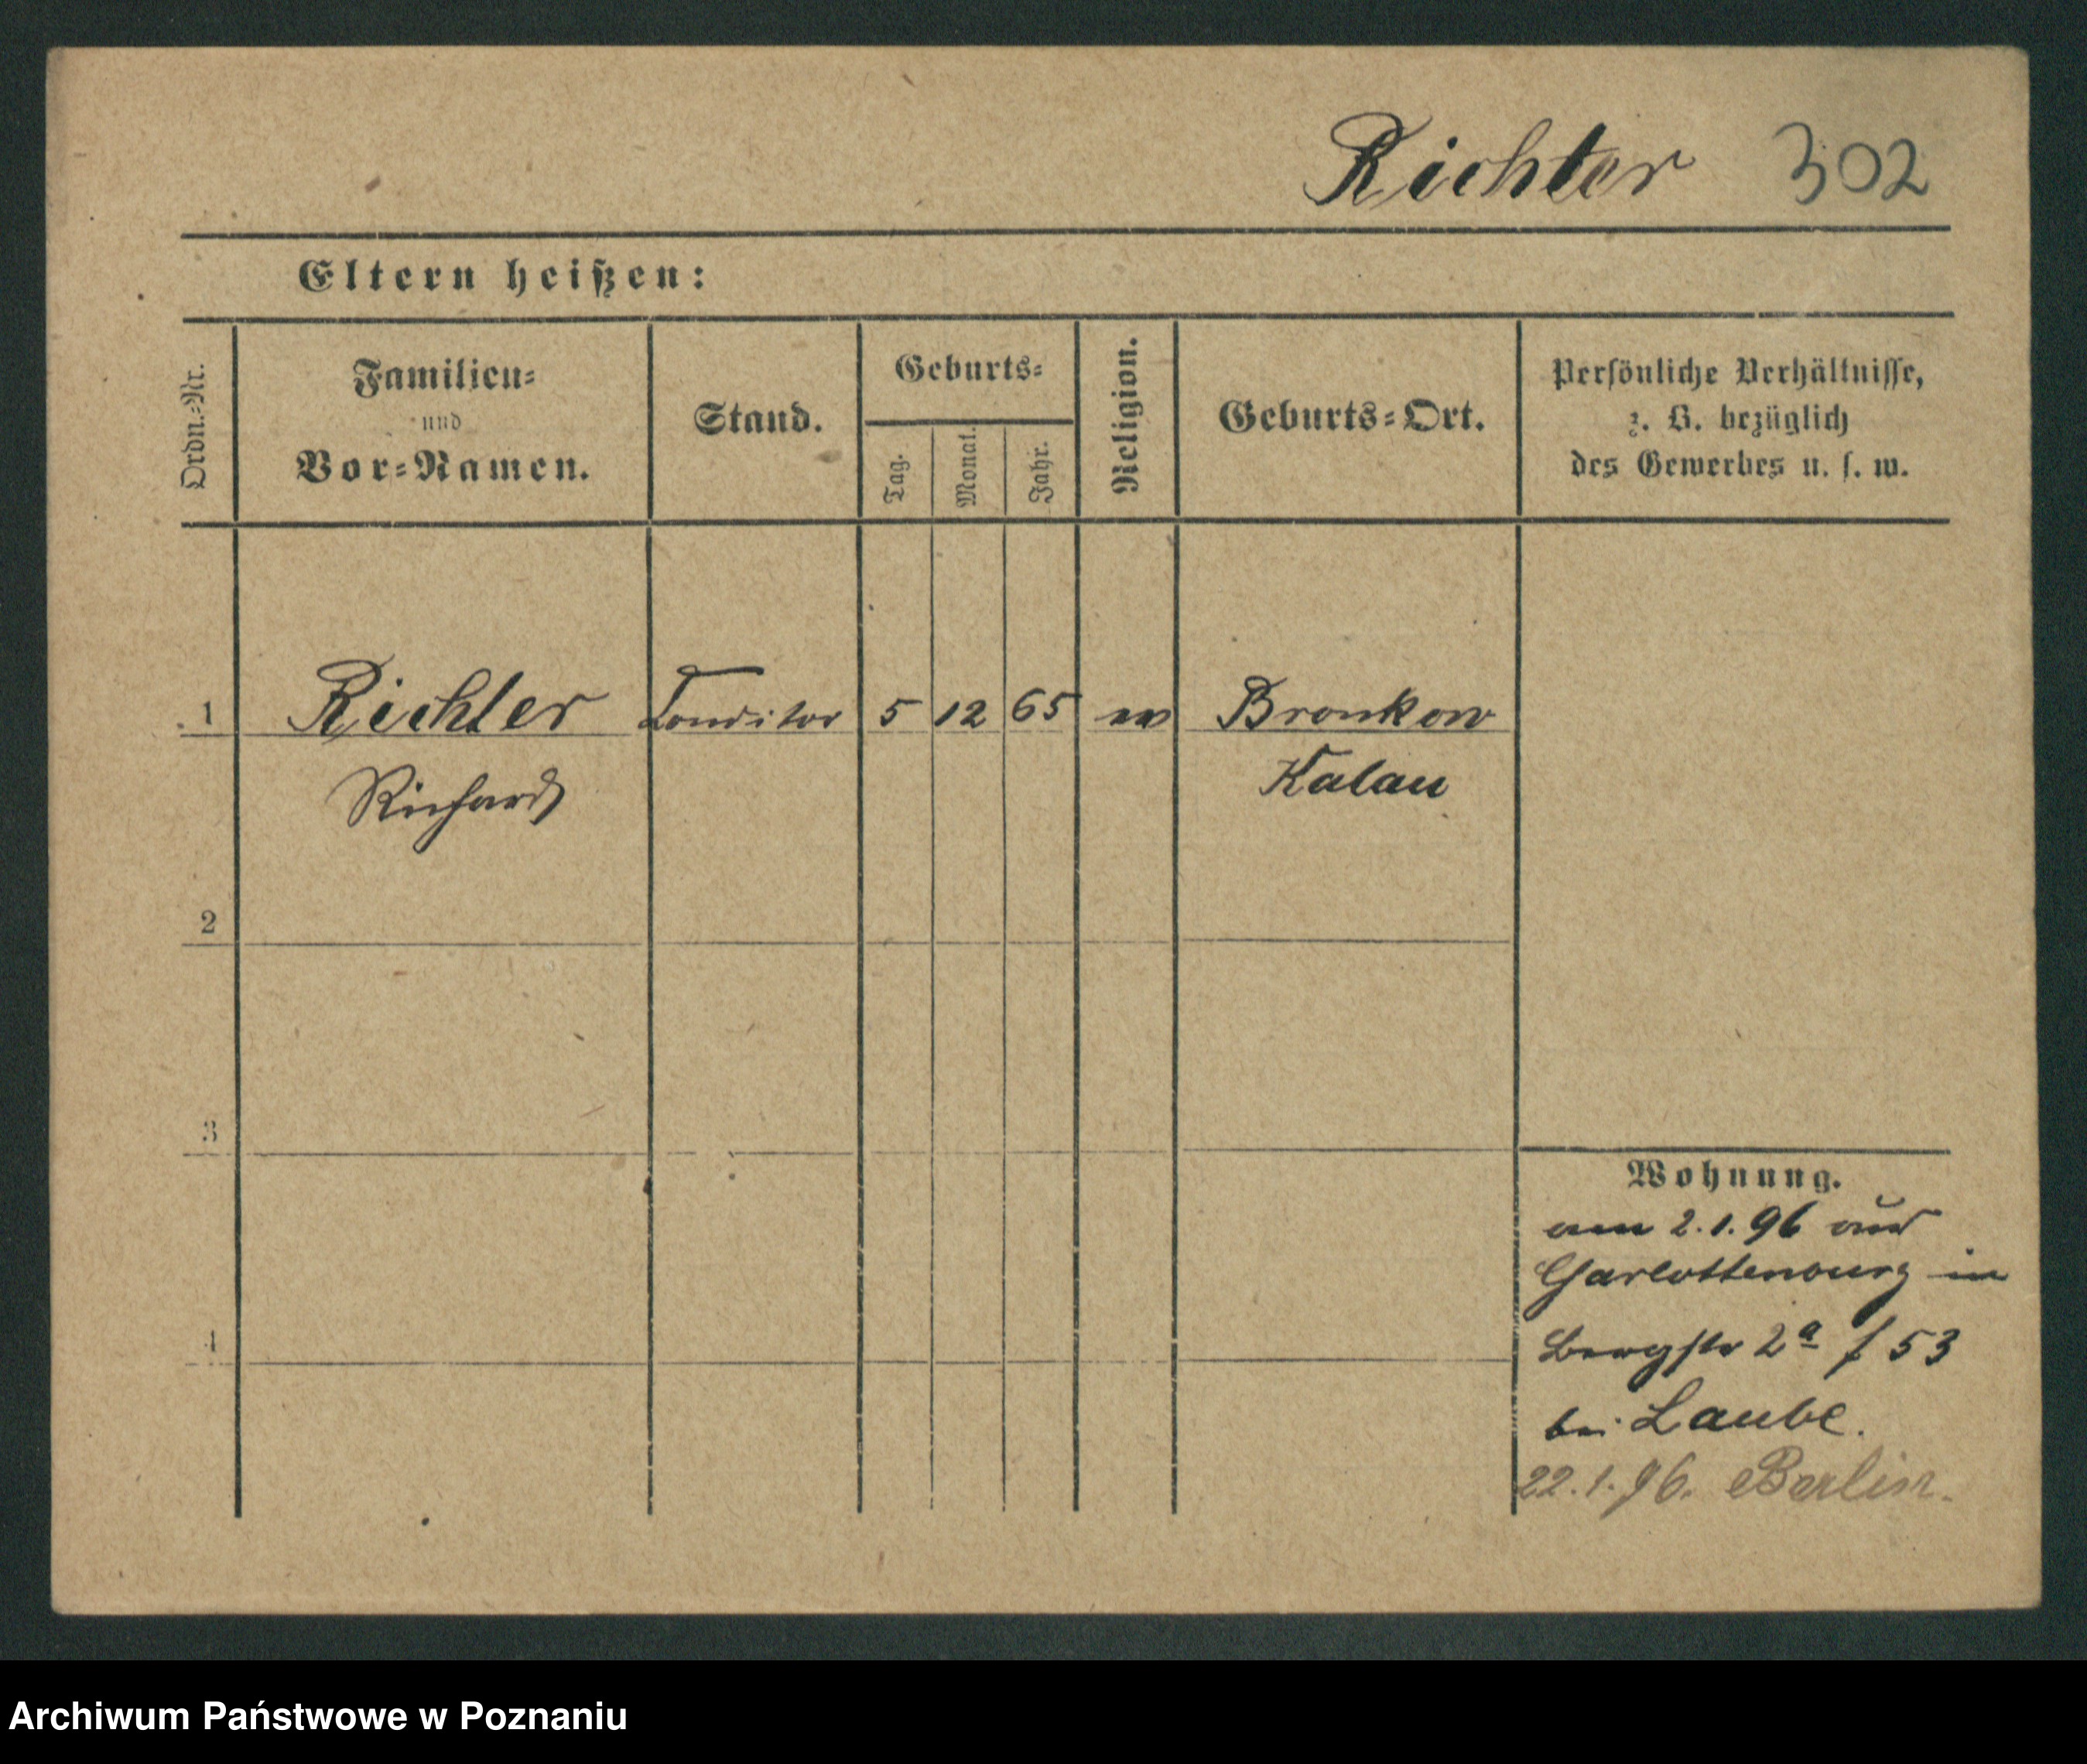 Richter 302
Eltern heißen:
Ordn.=Nr.
Familien=
und
Vor=Namen.
Stand.
Geburts=
Tag.
Monat.
Jahr.
Religion.
Geburts=Ort.
Persönliche Verhältnisse,
z. B. bezüglich
des Gewerbes u. s. w.
1 Richter Conditor 5 12 65 ev Bronkow
Richard Kalau
2
3
Wohnung.
am 2.1.96 aus
Charlottenburg in
4
Bergstr 2a f 53
bei Laube.
22.1.96. Berlin.
Archiwum Państwowe w Poznaniu